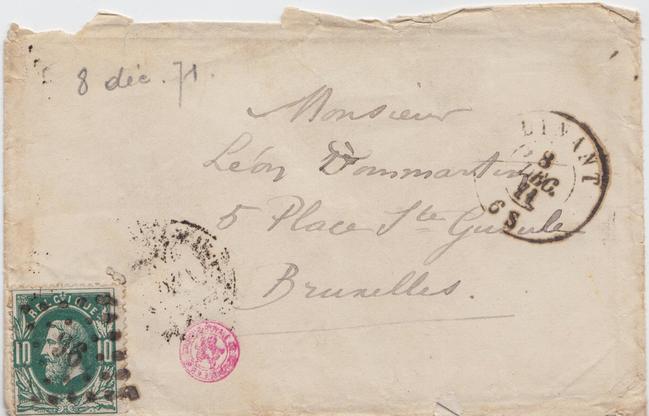 8 déc. 71.
Monsieur
Léon Dommartin
5 Place Ste Gudule
Bruxelles.
DINANT
8
DEC.
71
6 S
BELGIQUE
10 10
96